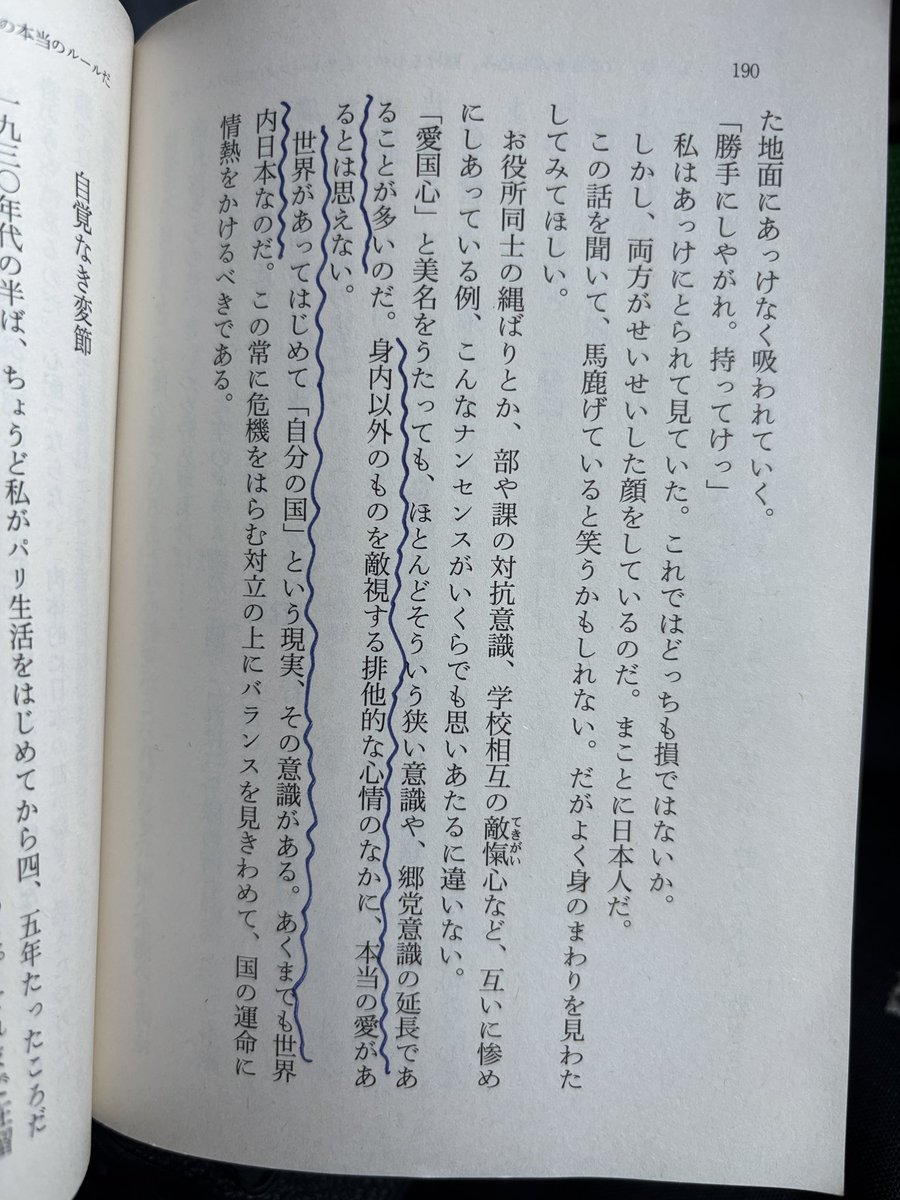 190
た地面にあっけなく吸われていく。
「勝手にしやがれ。持ってけっ」
私はあっけにとられて見ていた。これではどっちも損ではないか。
しかし、両方がせいせいした顔をしているのだ。まことに日本人だ。
この話を聞いて、馬鹿げていると笑うかもしれない。だがよく身のまわりを見わた
してみてほしい。
お役所同士の縄ばりとか、部や課の対抗意識、学校相互の敵愾心など、互いに惨め
てきがい
にしあっている例、こんなナンセンスがいくらでも思いあたるに違いない。
「愛国心」と美名をうたっても、ほとんどそういう狭い意識や、郷党意識の延長であ
ることが多いのだ。身内以外のものを敵視する排他的な心情のなかに、本当の愛があ
るとは思えない。
世界があってはじめて「自分の国」という現実、その意識がある。あくまでも世界
内日本なのだ。この常に危機をはらむ対立の上にバランスを見きわめて、国の運命に
情熱をかけるべきである。
の本当のルールだ
自覚なき変節
一九三〇年代の半ば、ちょうど私がパリ生活をはじめてから四、五年たったころだ